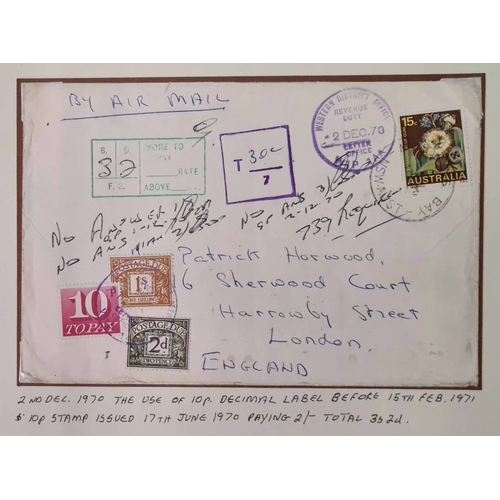 BY AIR MAIL
S. D. MORE TO
32 PAY
RATE
F. S. ABOVE
T 30c
7
WESTERN DISTRICT OFFICE
REVENUE
DUTY
2 DEC.70
LETTER
OFFICE
15c
AUSTRALIA
BAY
NO ANSWER
NO ANS
NO ANS
Patrick Horwood,
16 Sherwood Court
Harrowby Street
London.
ENGLAND
POSTAGE DUE
1s
ONE SHILLING
10
TO PAY
POSTAGE DUE
2d
TWO PENCE
2ND DEC. 1970 THE USE OF 10p. DECIMAL LABEL BEFORE 15TH FEB. 1971
10p STAMP ISSUED 17TH JUNE 1970 PAYING 2/- TOTAL 3s 2d.